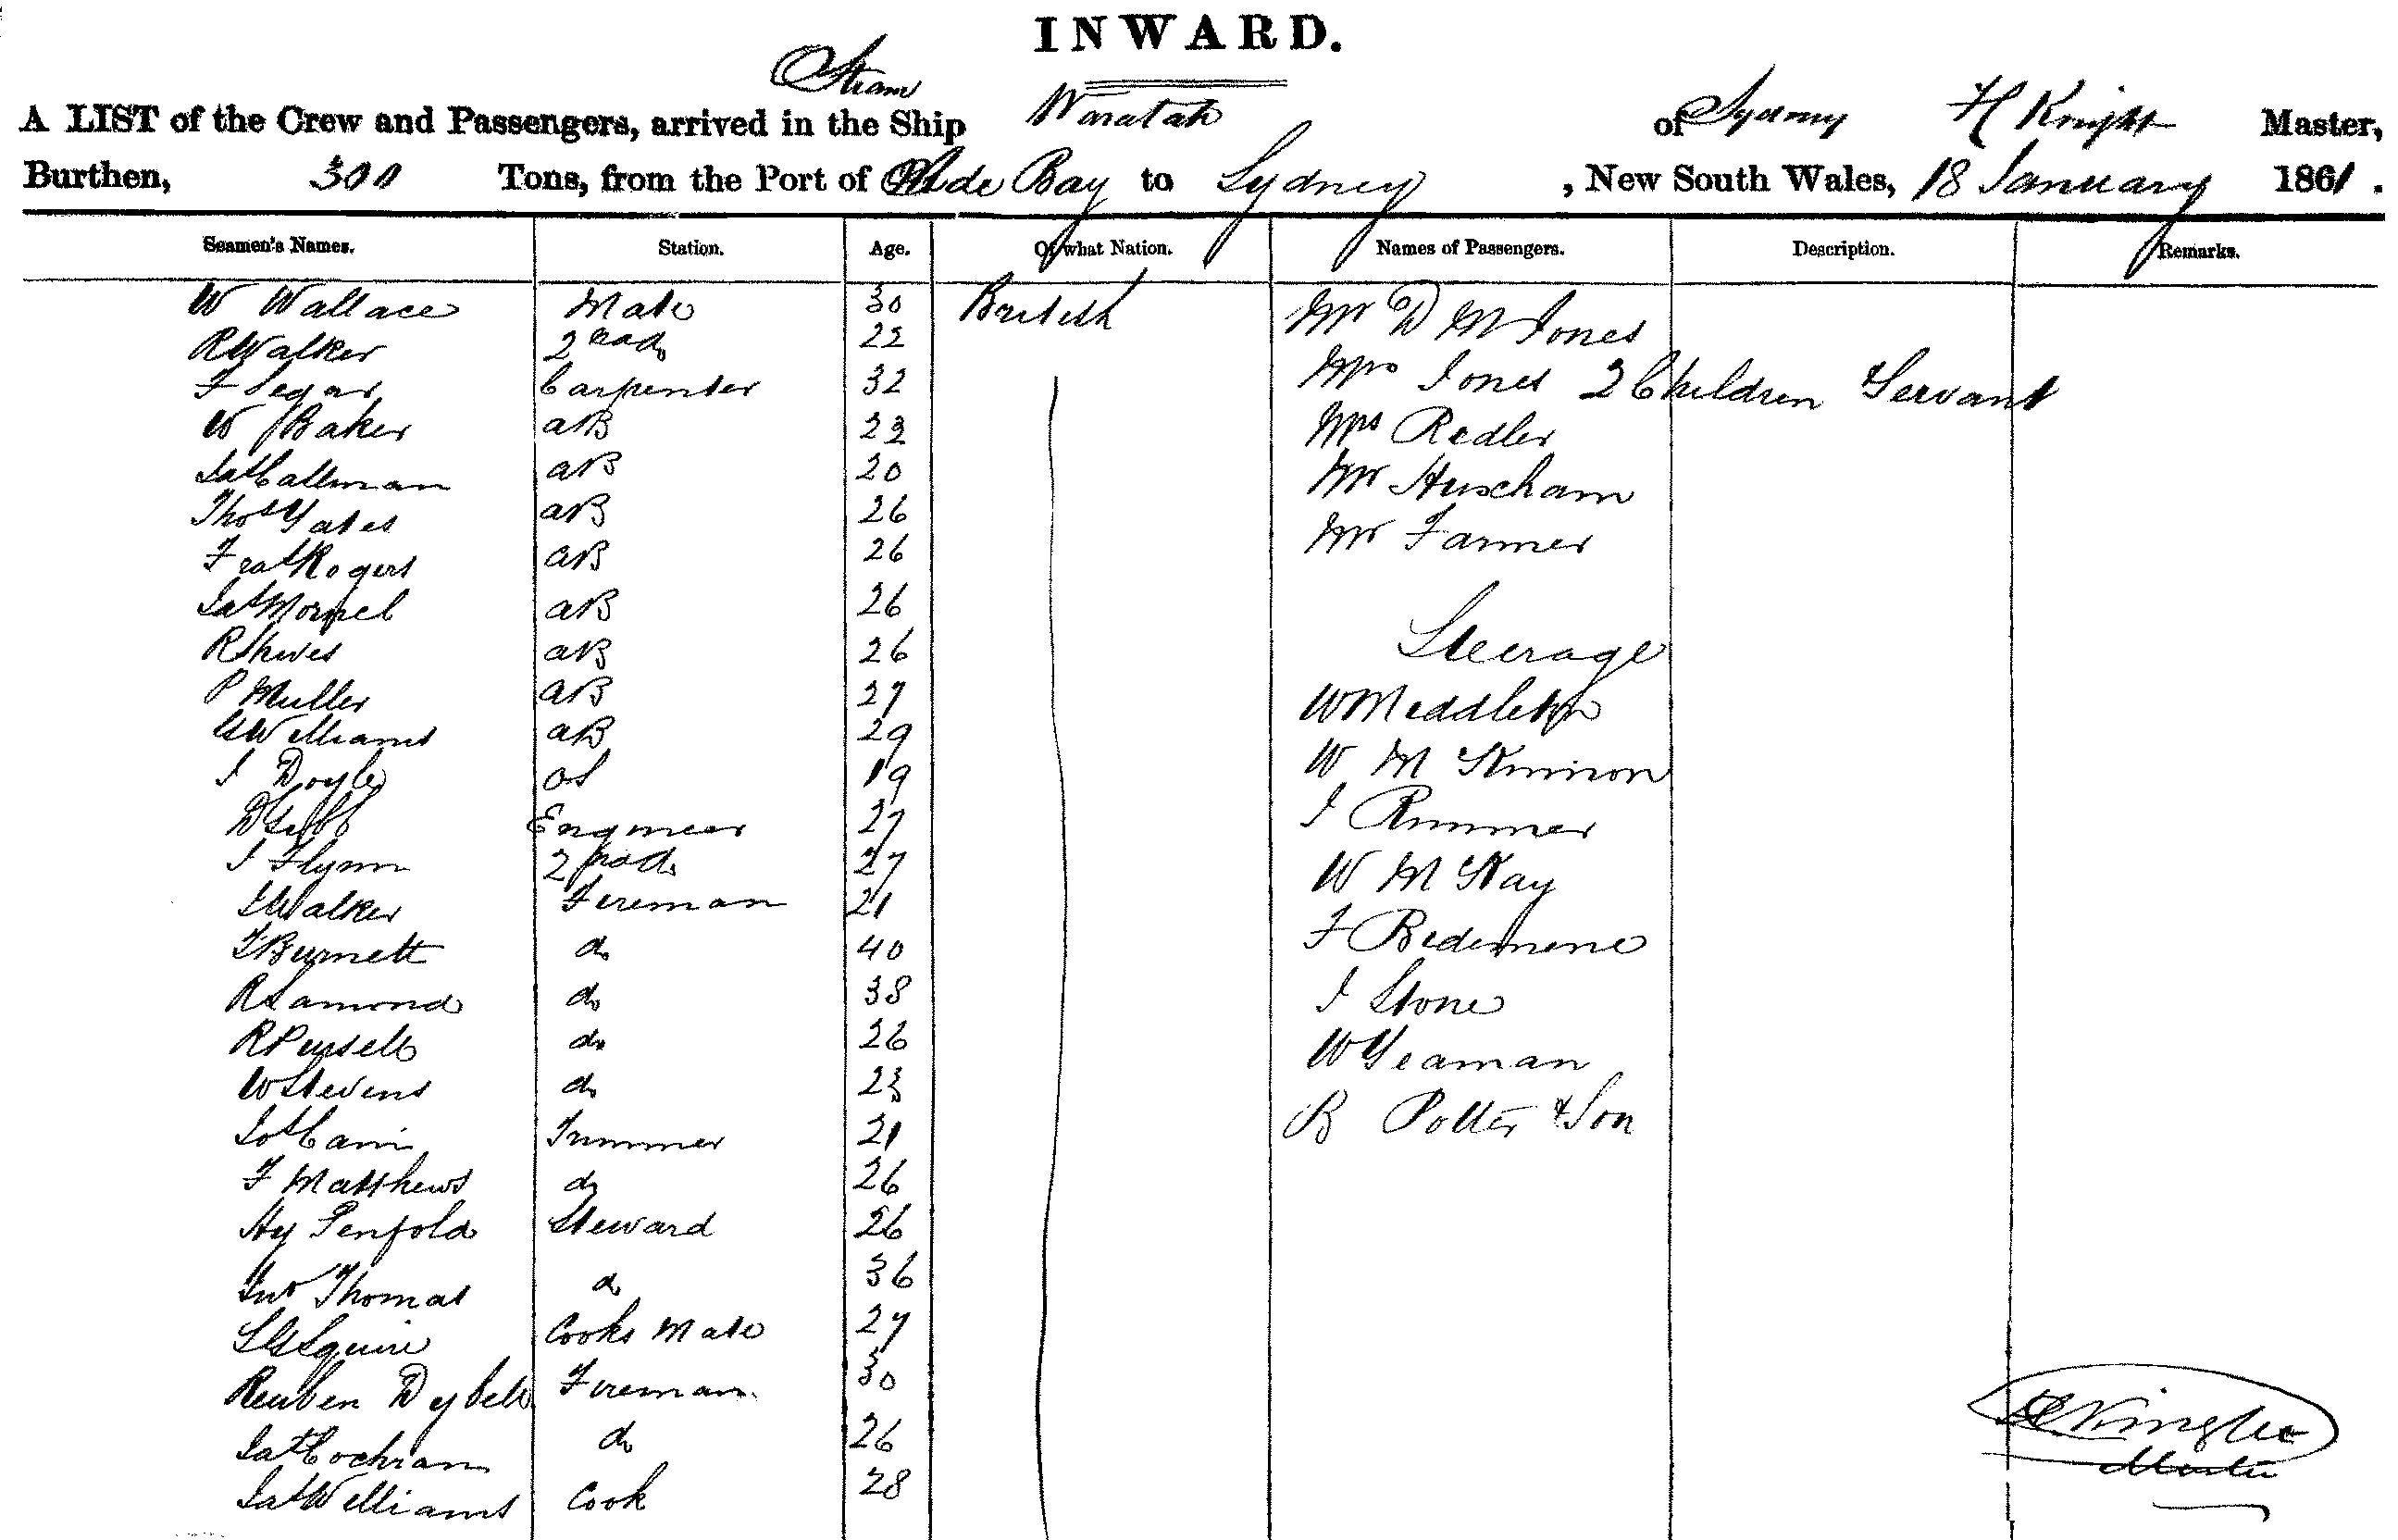 INWARD.
Steam
A LIST of the Crew and Passengers, arrived in the Ship Waratah of Sydney H Knight Master,
Burthen, 300 Tons, from the Port of Wide Bay to Sydney, New South Wales, 18 January 1861.
Seamen's Names. Station. Age. Of what Nation. Names of Passengers. Description. Remarks.
W Wallace Mate 30 British Mr D M Jones
R Walker 2nd do 22
F Segar Carpenter 32 Mrs Jones 2 Children Servant
W Baker aB 23 Mrs Redler
Jas Callman aB 20 Mr Huxham
Thos Yates aB 26 Mr Farmer
Fras Rogers aB 26
Jas aB 26
R aB 26 Steerage
P Muller aB 27 W Middleton
G Williams aB 29
J Doyle os 19 W M Kinnon
D Gibb Engineer 27 J Rimmer
J Flynn 2nd do 27 W M Kay
J Walker Fireman 21
T Burnett do 40 F
R Lamond do 38 J Stone
R Pursell do 26 W Yeaman
W Stevens do 23
Jos Cain Trimmer 21 B Potter & Son
F Matthews do 26
Hy Penfold Steward 26
Jno Thomas do 36
Squire Cooks Mate 27
Reuben Dybell Fireman 30
Jas Cochran do 26
Jas Williams Cook 28
H Knight
Master